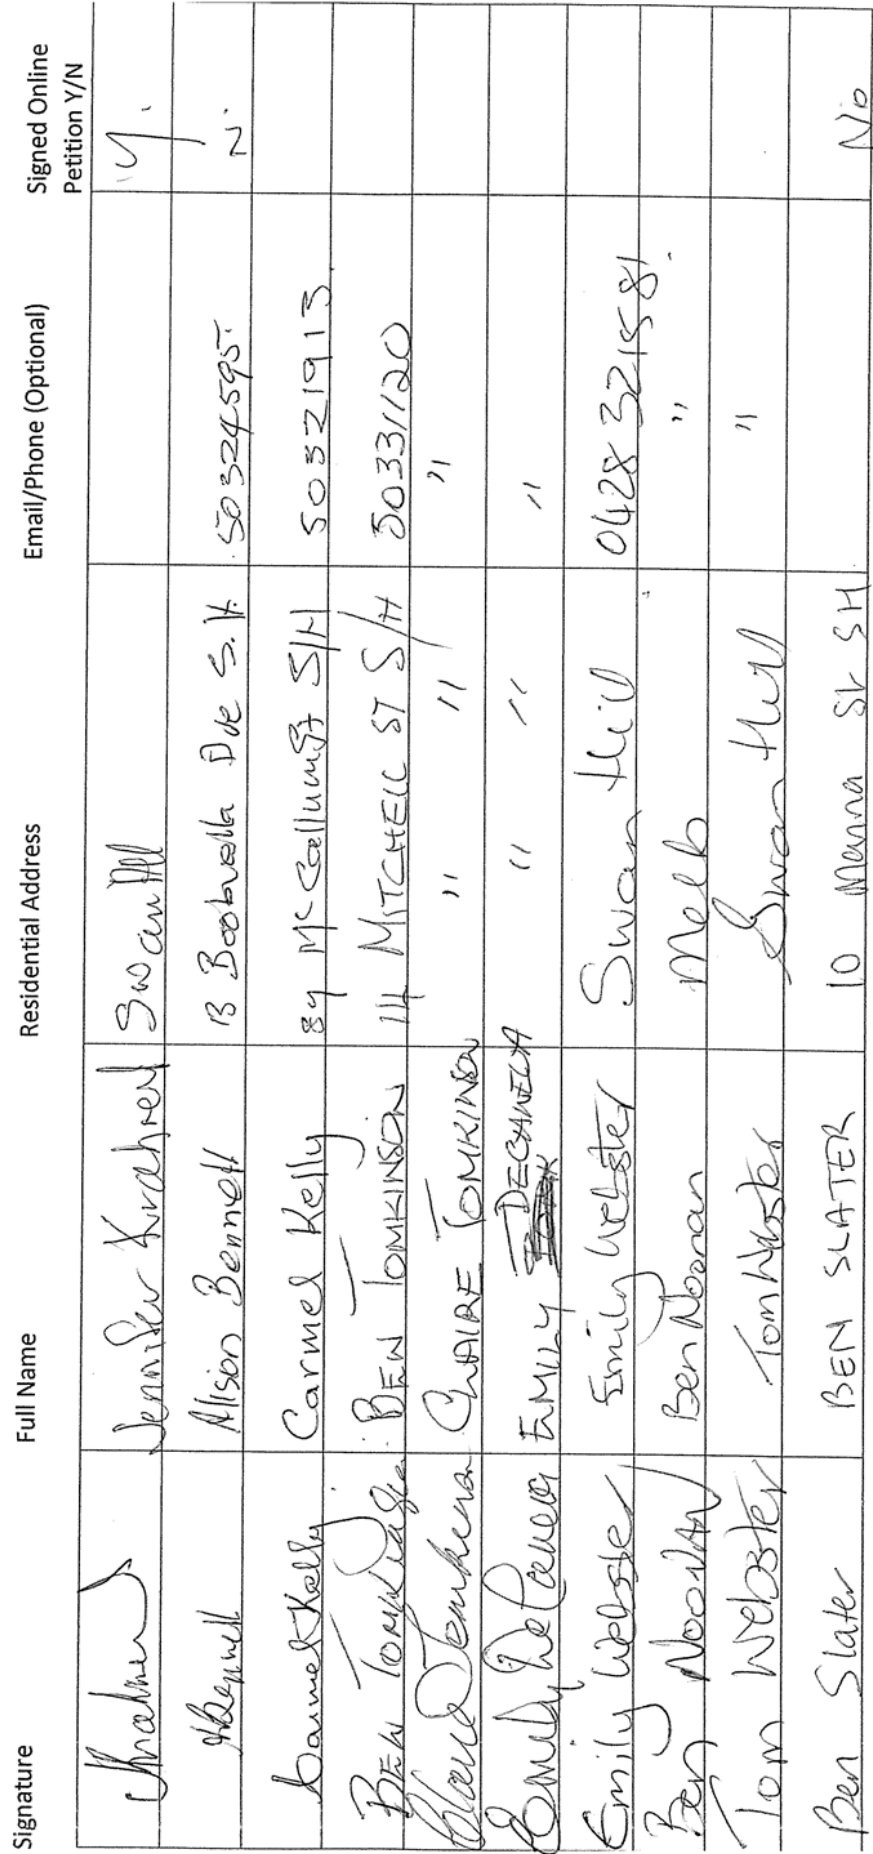 Signature Full Name Residential Address Email/Phone (Optional) Signed Online Petition Y/N
Jennifer Krahnert Swan Hill Y.
Alison Bennett 13 Ave S.H. 50324595. N.
Carmel Kelly Carmel Kelly 84 McCallum St S/H 50321913.
BEN TOMKINSON 14 MITCHELL ST S/H 50331120
Claire Tomkinson CLAIRE TOMKINSON " " "
Emily EMILY " " "
Emily Webster Emily Webster Swan Hill 0428 321581
Ben NOONAN Ben Noonan Melb " "
Tom Webster Tom Webster Swan Hill "
Ben Slater BEN SLATER 10 Manna St SH No